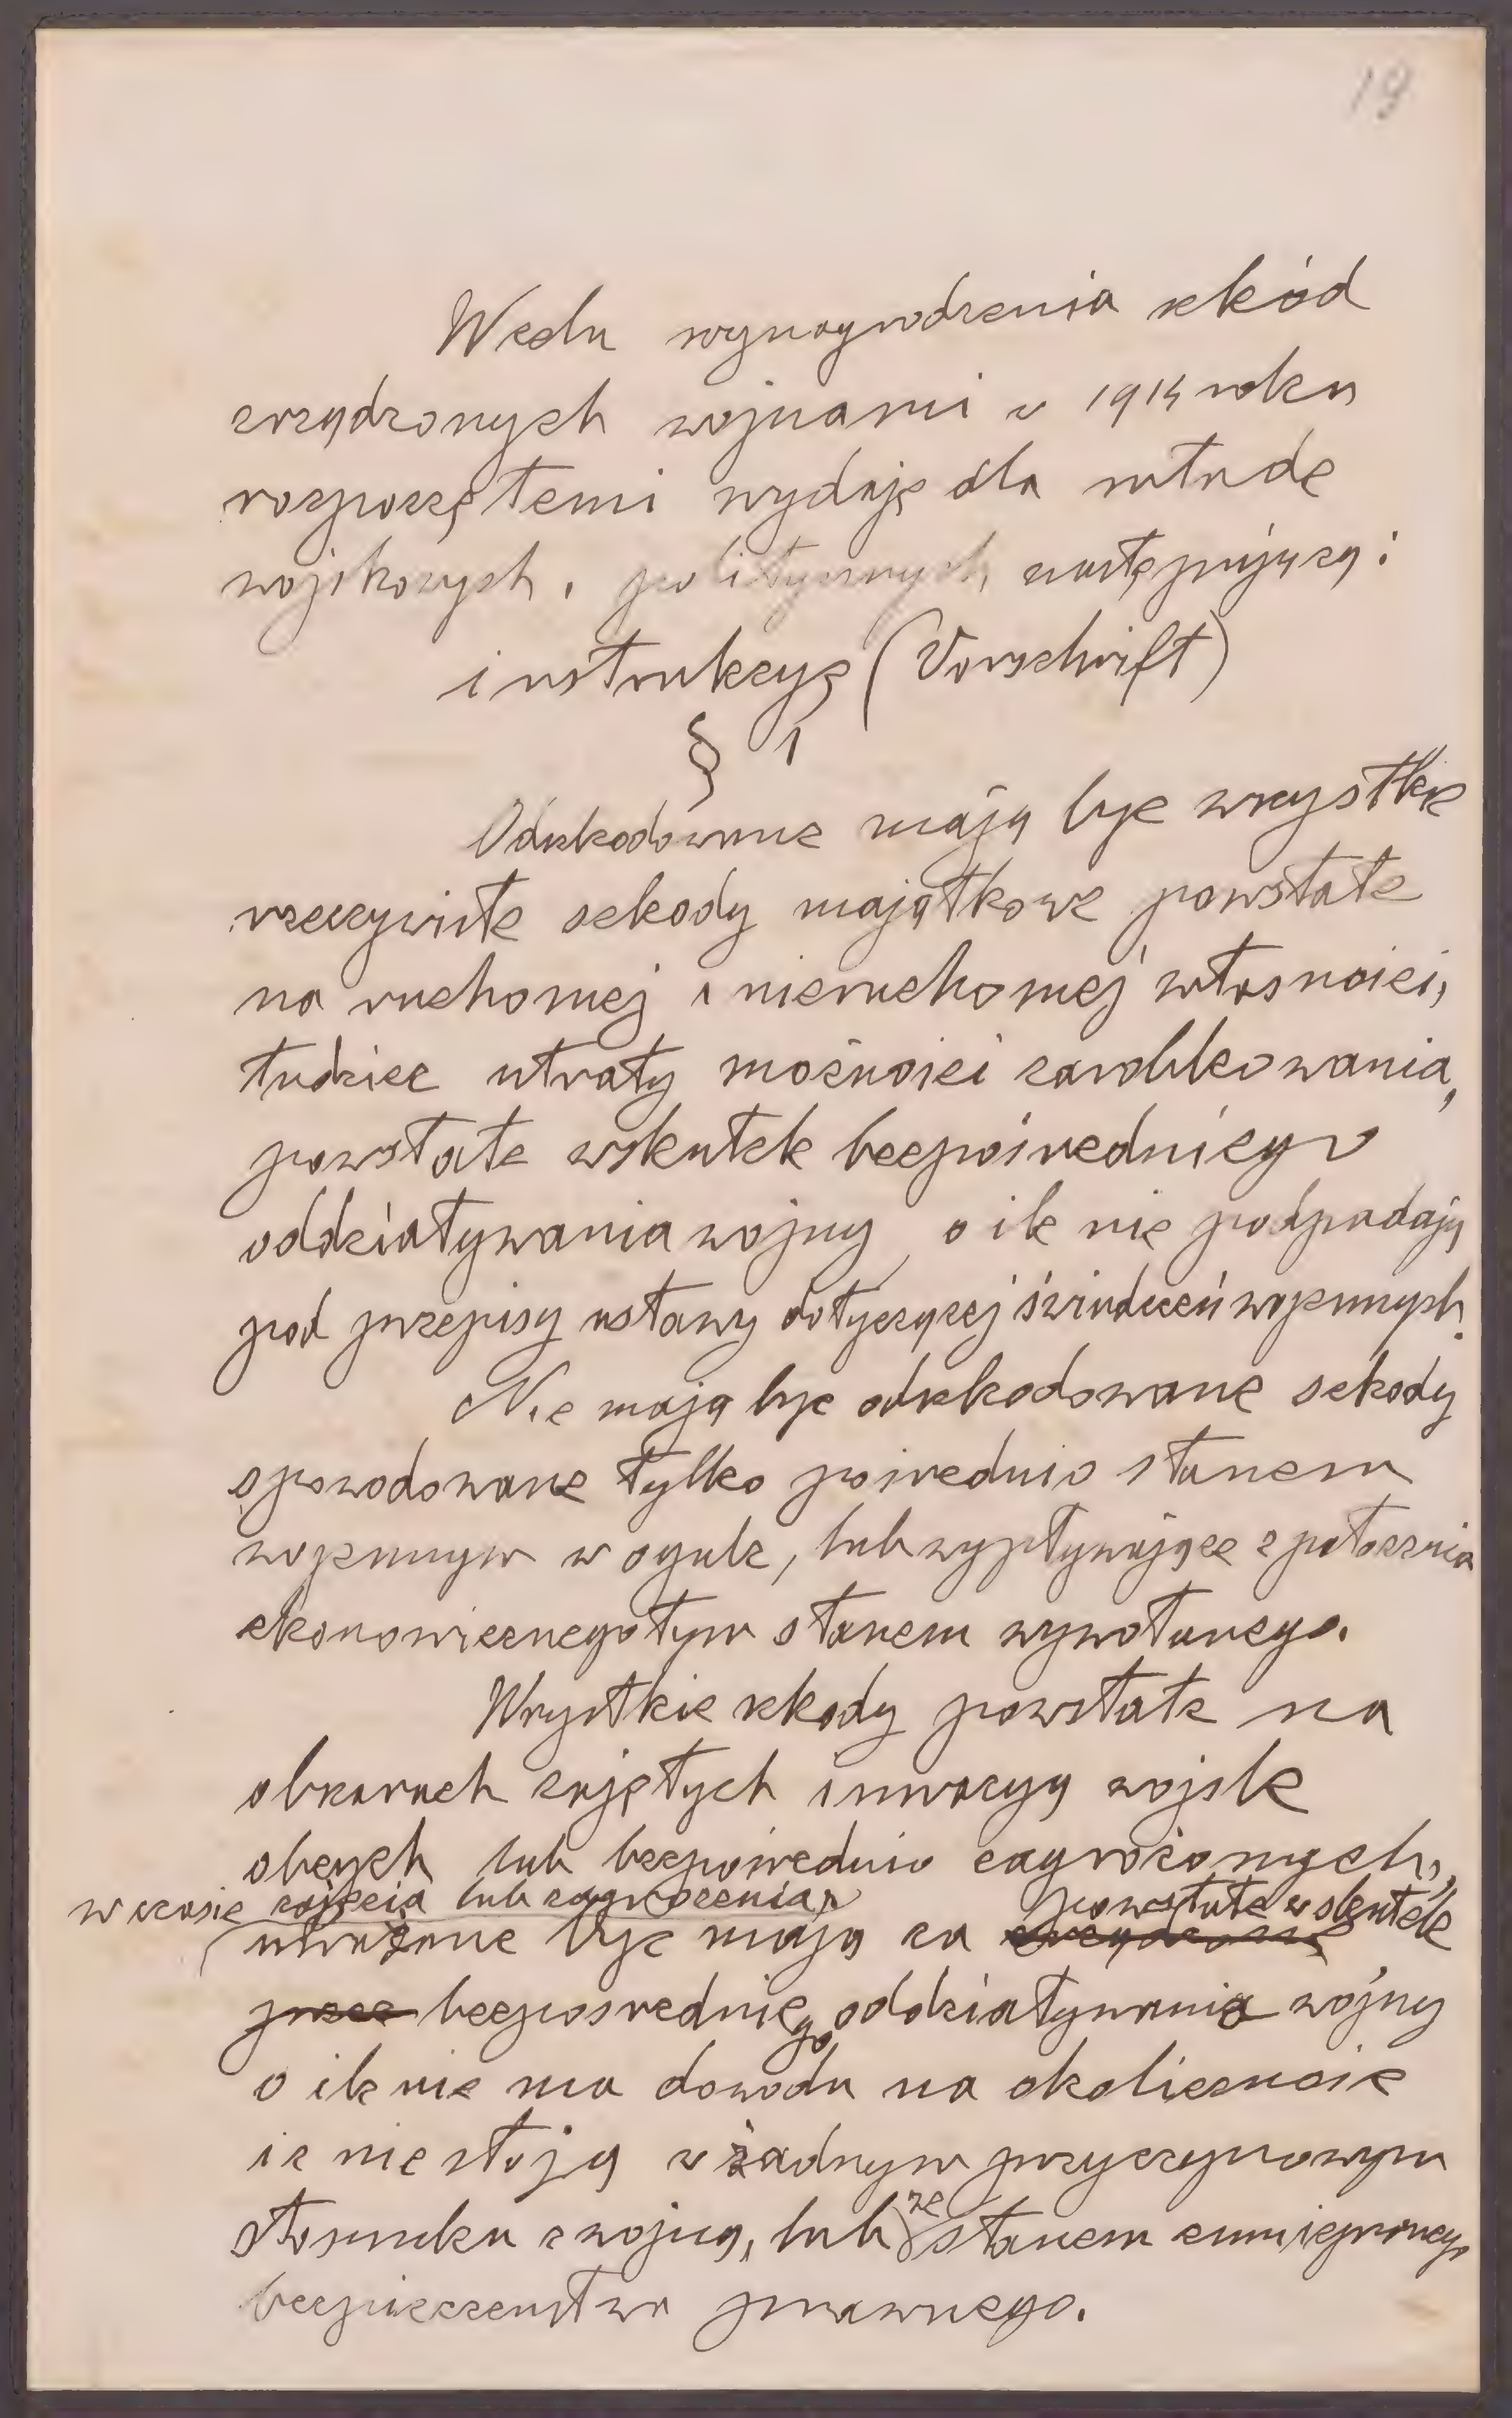 19
Wedu wynagrodzenia szkód
zrządzonych wojnami w 1914 roku
rozpoczętemi wydaję dla władz
wojskowych i politycznych następującą:
instrukcyę (Vorschrift)
§ 1
Odszkodowane mają być wszystkie
rzeczywiste szkody majątkowe powstałe
na ruchomej i nieruchomej własności,
tudzież utraty możności zarobkowania,
powstałe wskutek bezpośredniego
oddziaływania wojny, o ile nie podpadają
pod przepisy ustawy dotyczącej świadczeń wojennych.
Nie mają być odszkodowane szkody
spowodowane tylko pośrednio stanem
wojennym w ogule, lub wypływające z położenia
ekonomicznego tym stanem wywołanego.
Wszystkie szkody powstałe na
obszarach zajętych inwazyą wojsk
obcych lub bezpośrednio zagrożonych,
w czasie zajęcia lub zagrożenia powstałe wskutek
uważane być mają za
przez bezpośredniego oddziaływania wojny
o ile nie ma dowodu na okoliczność
iż nie stoją w żadnym przyczynowym
stosunku z wojną, lub ze stanem zmniejszonego
bezpieczeństwa prawnego.